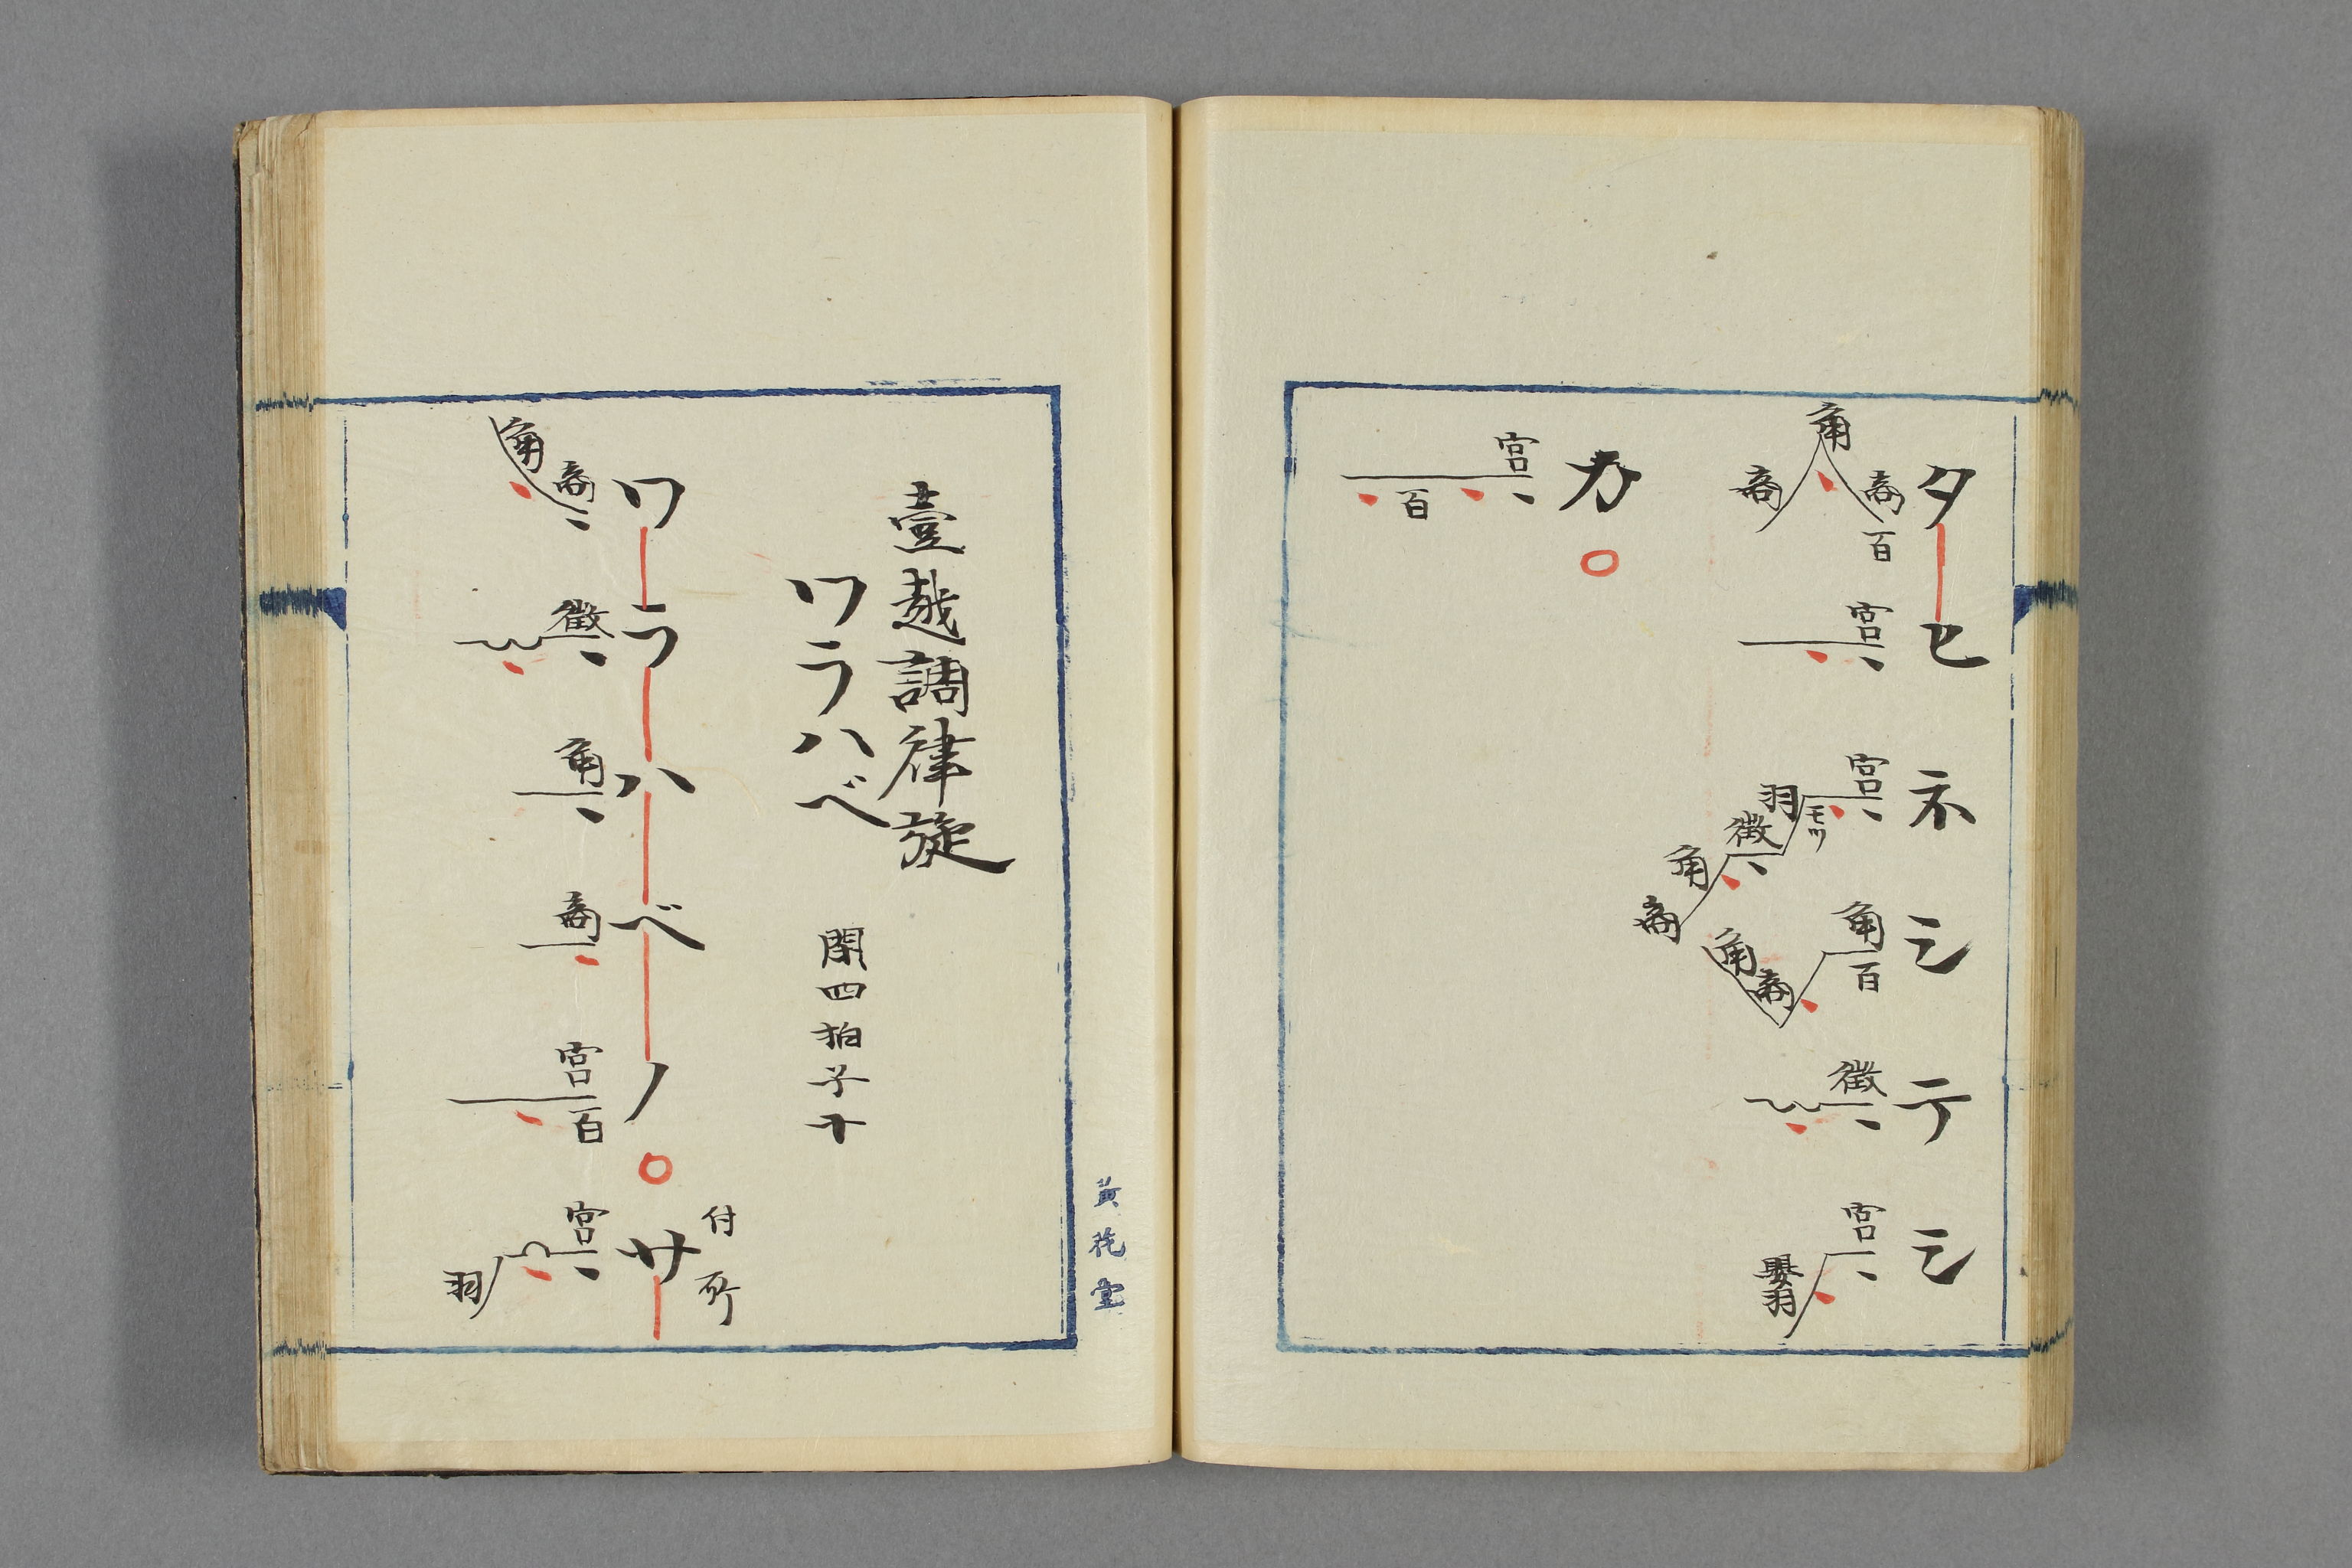 タヒネシテシ
角
商 商
百
宮
宮
羽 モツ
徴
角
商
角
百
商
角
徴
宮
嬰羽
カ
宮
百
黄花堂
壹越調律旋
ワラハベ
閑四拍子
ワラハベノサ
付所
商
角
徴
角
商
宮
百
宮
羽